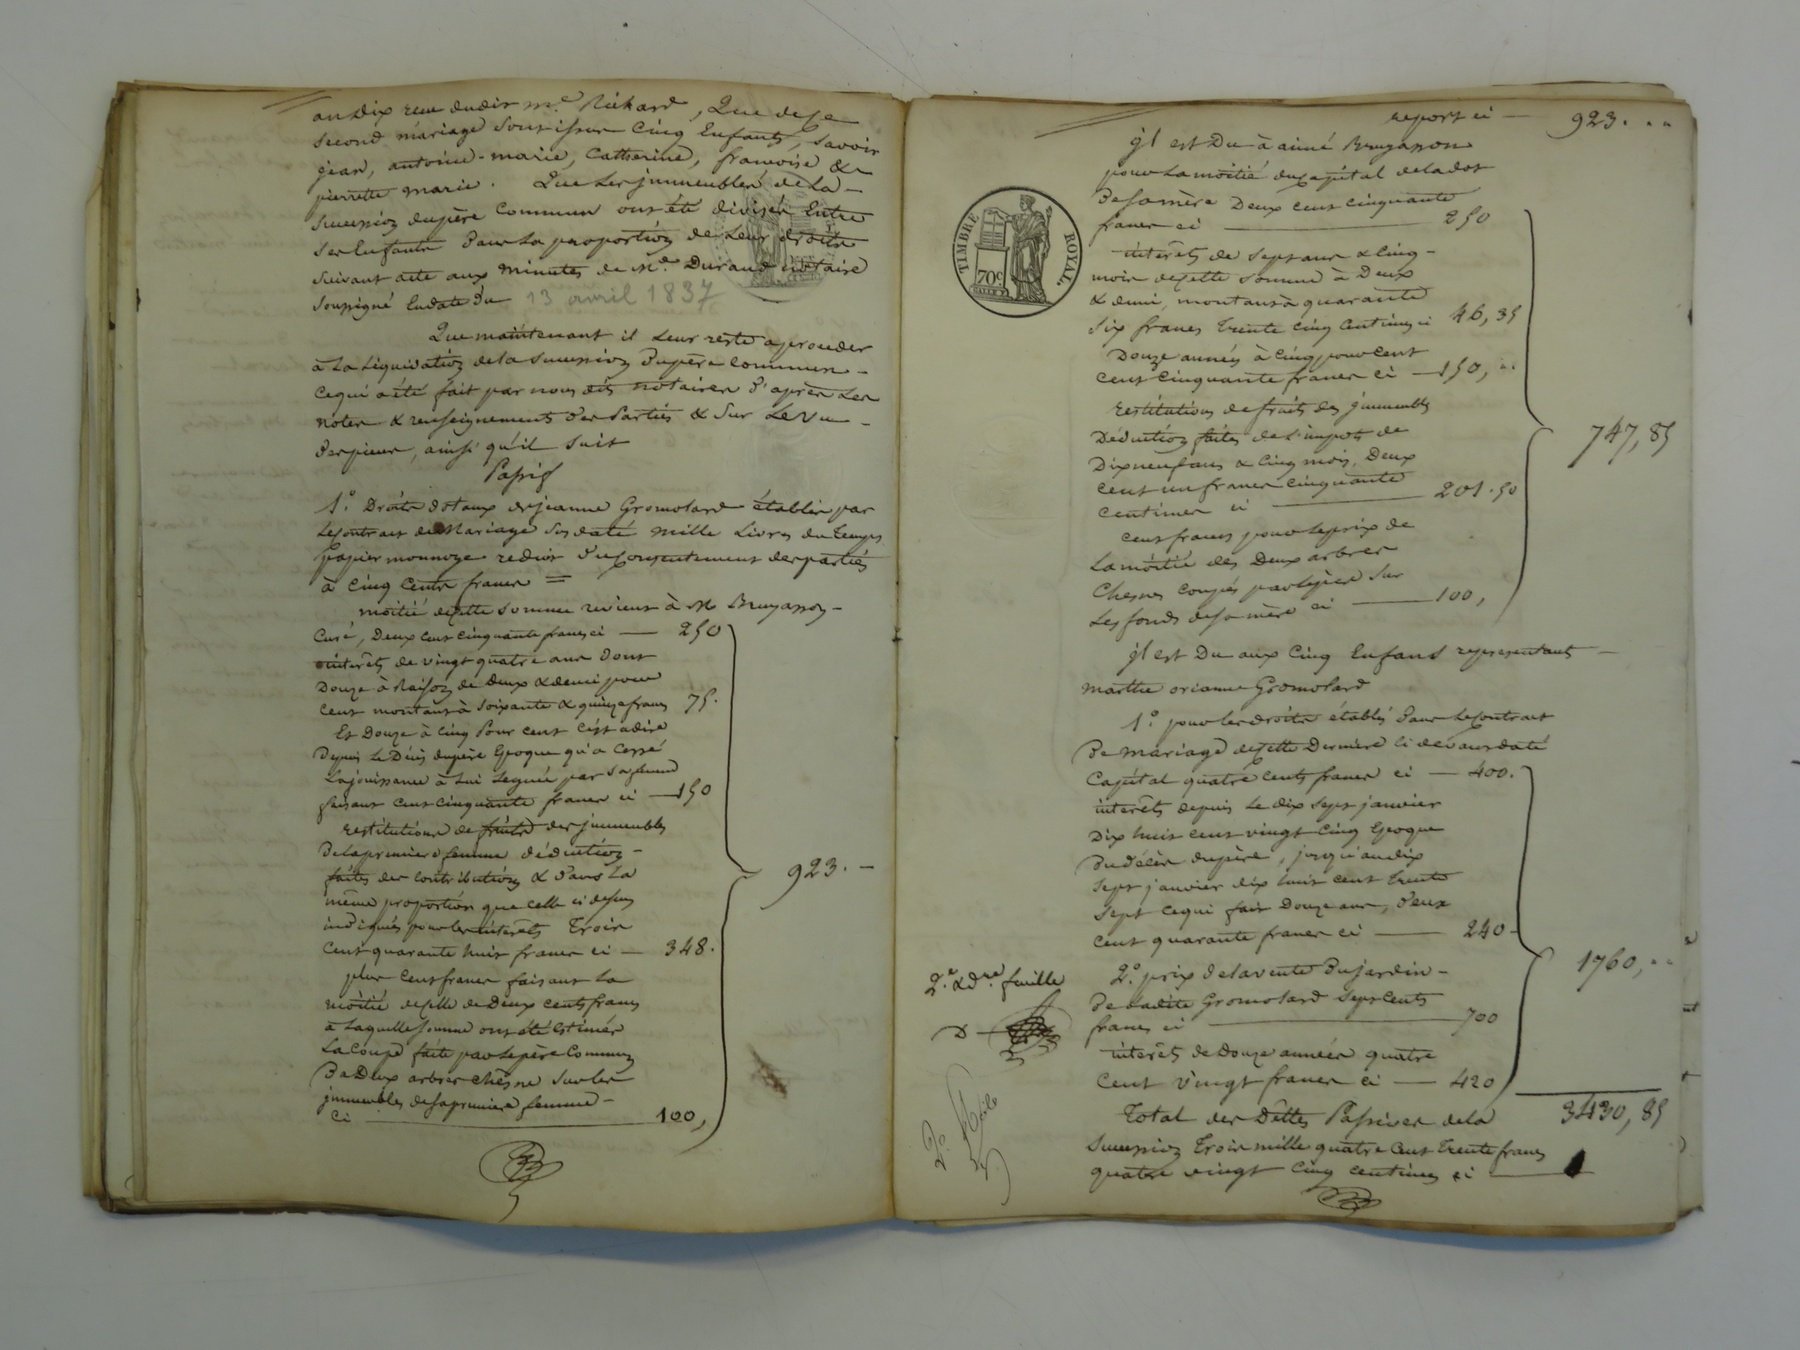 an dix reçu dudit me. Richard, Que de ce
second mariage sont issus cinq Enfants, savoir
jean, antoine-marie, Catherine, françoise &
pierrette marie. Que les jmmeubles de la
succession du père commun ont été divisés Entre
ses Enfants dans la proportion de leurs droits
suivant acte aux minutes de Me. Durand notaire
soussigné En date du 13 avril 1837
Que maintenant il leur reste a proceder
à la liquidation de la succession du père commun
ce qui a été fait par nous dits notaires d'après les
notes & renseignements des Parties & sur le vu
des pieces, ainsi qu'il suit
Passif
1.° Droits dotaux de jeanne Gromolard établis par
le contrat de Mariage sus daté mille Livres du temps
papier monnoye réduit du consentement des parties
à cinq cents francs =
moitié de cette somme revient à M Bruyasson
Curé, Deux cent cinquante francs ci — 250
interêts de vingt quatre ans dont
Douze à Raison de deux & demi pour
cent montant à soixante & quinze francs 75.
Et Douze à cinq Pour cent c'est a dire
Depuis le Décès du père Epoque qu'a cessé
la jouissance à lui leguée par sa femme
faisant cent cinquante francs ci — 150
restitutions de fruits des jmmeubles
De la premiere femme déduction
faites des contributions & dans la
même proportion que celle ci dessus
indiquée pour les interêts Trois
cent quarante huit francs ci — 348.
plus cent francs faisant la
moitié de celle de Deux cents francs
à laquelle somme ont été Estimés
la coupe faite par le père Commun
De Deux arbres chêne sur les
jmmeubles de sa premiere femme
ci — 100,
923. —
report ci — 923. ..
TIMBRE ROYAL
70c
jl est Du à aimé Bruyasson
pour la moitié du capital de la dot
De sa mère Deux cent cinquante
francs ci — 250
interêts de sept ans & cinq
mois de cette somme à Deux
& demi, montant à quarante
six francs trente cinq centimes ci 46,35
Douze années à cinq pour cent
cent cinquante francs ci — 150, ..
restitutions de fruits des jmmeubles
Déduction faites de l'impots de
Dix neuf ans & cinq mois, Deux
cent un francs cinquante
centimes ci — 201.50
cent francs pour le prix de
la moitié des Deux arbres
Chesnes coupés par le père sur
les fonds de sa mère ci — 100,
747,85
jl est Du aux cinq Enfans representants
marthe orianne Gromolard
1.° pour les droits établis dans le contrat
De mariage de cette Dernière ci devant daté
Capital quatre cents francs ci — 400.
interêts depuis le dix sept janvier
Dix huit cent vingt cinq Epoque
Du décès du père, jusqu'au dix
sept janvier dix huit cent trente
sept ce qui fait Douze ans, deux
cent quarante francs ci — 240
2.° prix de la vente du jardin
De ladite Gromolard sept cents
francs ci — 700
interêts de Douze années quatre
cent vingt francs ci — 420
1760, ..
2.e & dre. feuille
Total des Dettes Passives de la 3430,85
succession Trois mille quatre cent trente francs
quatre vingt cinq centimes ci